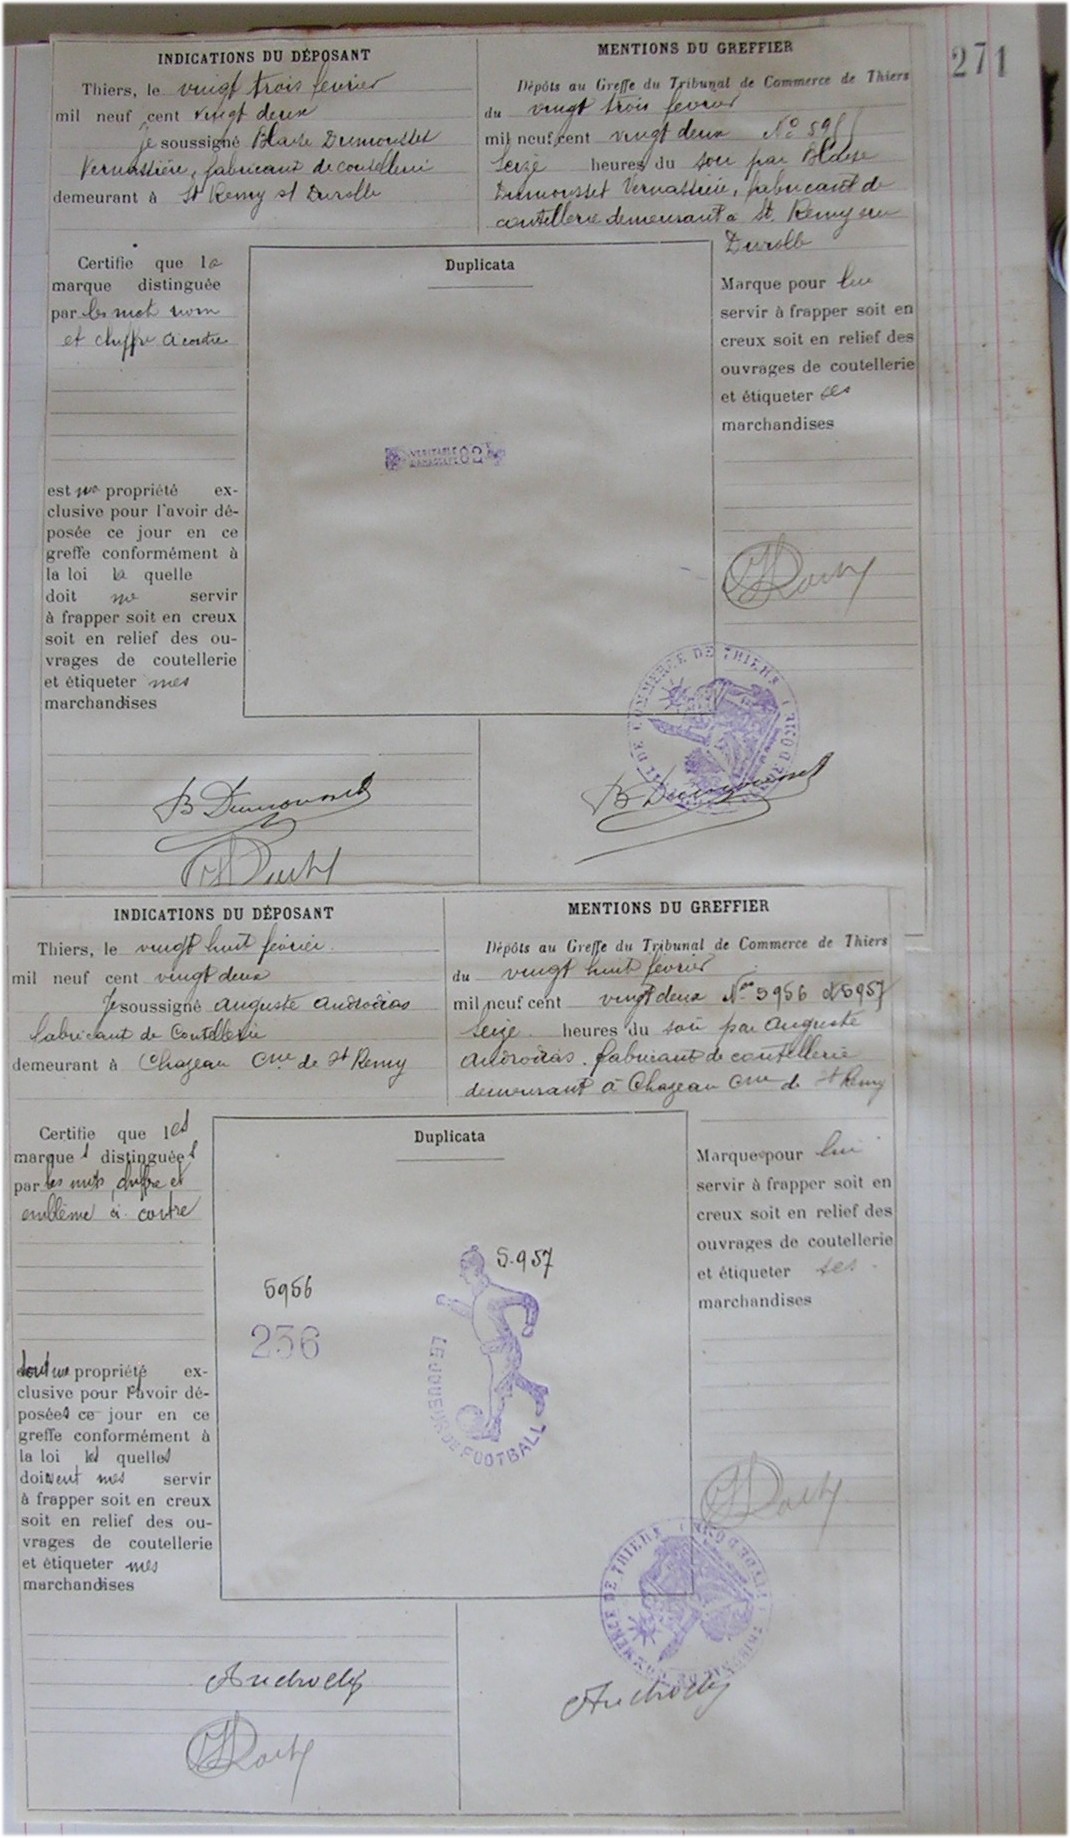 271
INDICATIONS DU DÉPOSANT
Thiers, le vingt trois février
mil neuf cent vingt deux
je soussigné Blaise Dumousset
Vernassière, fabricant de coutellerie
demeurant à St Remy s/ Durolle
MENTIONS DU GREFFIER
Dépôts au Greffe du Tribunal de Commerce de Thiers
du vingt trois fevrier
mil neuf cent vingt deux No 595
Seize heures du soir par Blaise
Dumousset Vernassière, fabricant de
coutellerie demeurant à St. Remy sur
Durolle
Certifie que la
marque distinguée
par les mot nom
et chiffre à contre
est ma propriété ex-
clusive pour l'avoir dé-
posée ce jour en ce
greffe conformément à
la loi la quelle
doit me servir
à frapper soit en creux
soit en relief des ou-
vrages de coutellerie
et étiqueter mes
marchandises
Duplicata
VERITABLE
82
Marque pour lui
servir à frapper soit en
creux soit en relief des
ouvrages de coutellerie
et étiqueter ses
marchandises
DE COMMERCE DE THIERS
B Dumousset
B Dumousset
INDICATIONS DU DÉPOSANT
Thiers, le vingt huit février
mil neuf cent vingt deux
Je soussigné Auguste Androdias
fabricant de Coutellerie
demeurant à Chazeau Cne de St Remy
MENTIONS DU GREFFIER
Dépôts au Greffe du Tribunal de Commerce de Thiers
du vingt huit février
mil neuf cent vingt deux Nos 5956 & 5957
Seize heures du soir par Auguste
Androdias. fabricant de coutellerie
demeurant à Chazeau Cne de St Remy
Certifie que les
marques distinguées
par les mots, chiffre et
emblème à contre
sont ma propriété ex-
clusive pour l'avoir dé-
posées ce jour en ce
greffe conformément à
la loi les quelles
doivent mes servir
à frapper soit en creux
soit en relief des ou-
vrages de coutellerie
et étiqueter mes
marchandises
Duplicata
5956
236
5.957
LE JOUEUR DE FOOTBALL
Marques pour lui
servir à frapper soit en
creux soit en relief des
ouvrages de coutellerie
et étiqueter ses
marchandises
COMMERCE DE THIERS